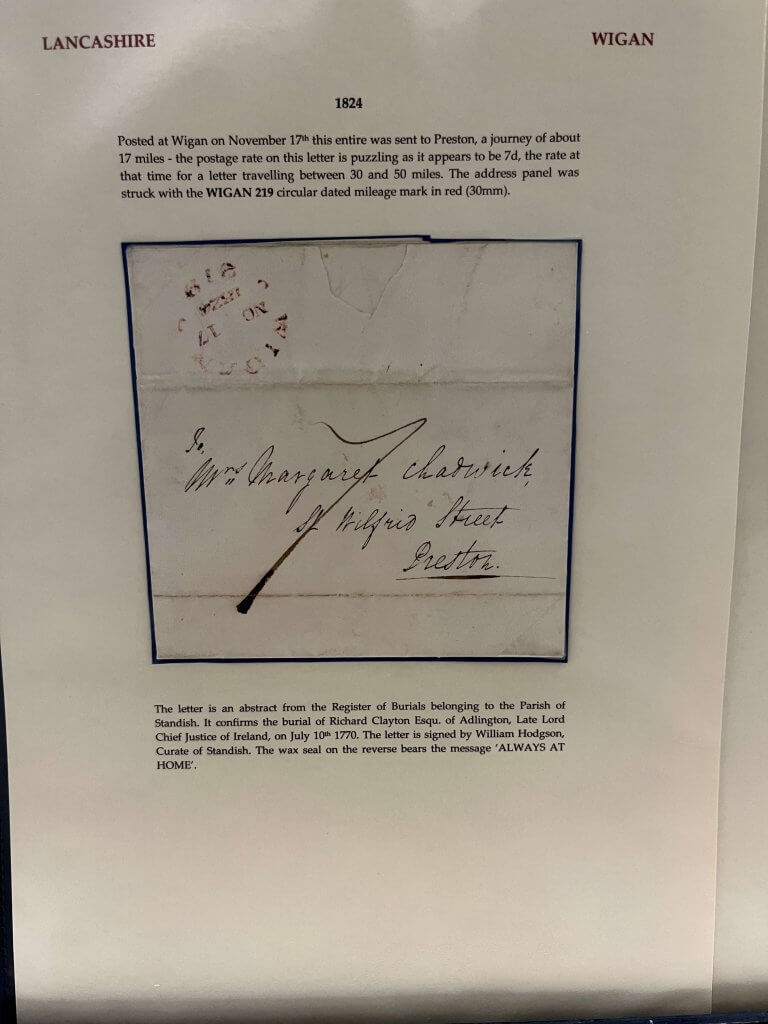 LANCASHIRE WIGAN
1824
Posted at Wigan on November 17th this entire was sent to Preston, a journey of about
17 miles - the postage rate on this letter is puzzling as it appears to be 7d, the rate at
that time for a letter travelling between 30 and 50 miles. The address panel was
struck with the WIGAN 219 circular dated mileage mark in red (30mm).
219
1824
NO 17
WIGAN
To,
Mrs Margaret Chadwick,
7
St Wilfrid Street
Preston.
The letter is an abstract from the Register of Burials belonging to the Parish of
Standish. It confirms the burial of Richard Clayton Esqu. of Adlington, Late Lord
Chief Justice of Ireland, on July 10th 1770. The letter is signed by William Hodgson,
Curate of Standish. The wax seal on the reverse bears the message 'ALWAYS AT
HOME'.